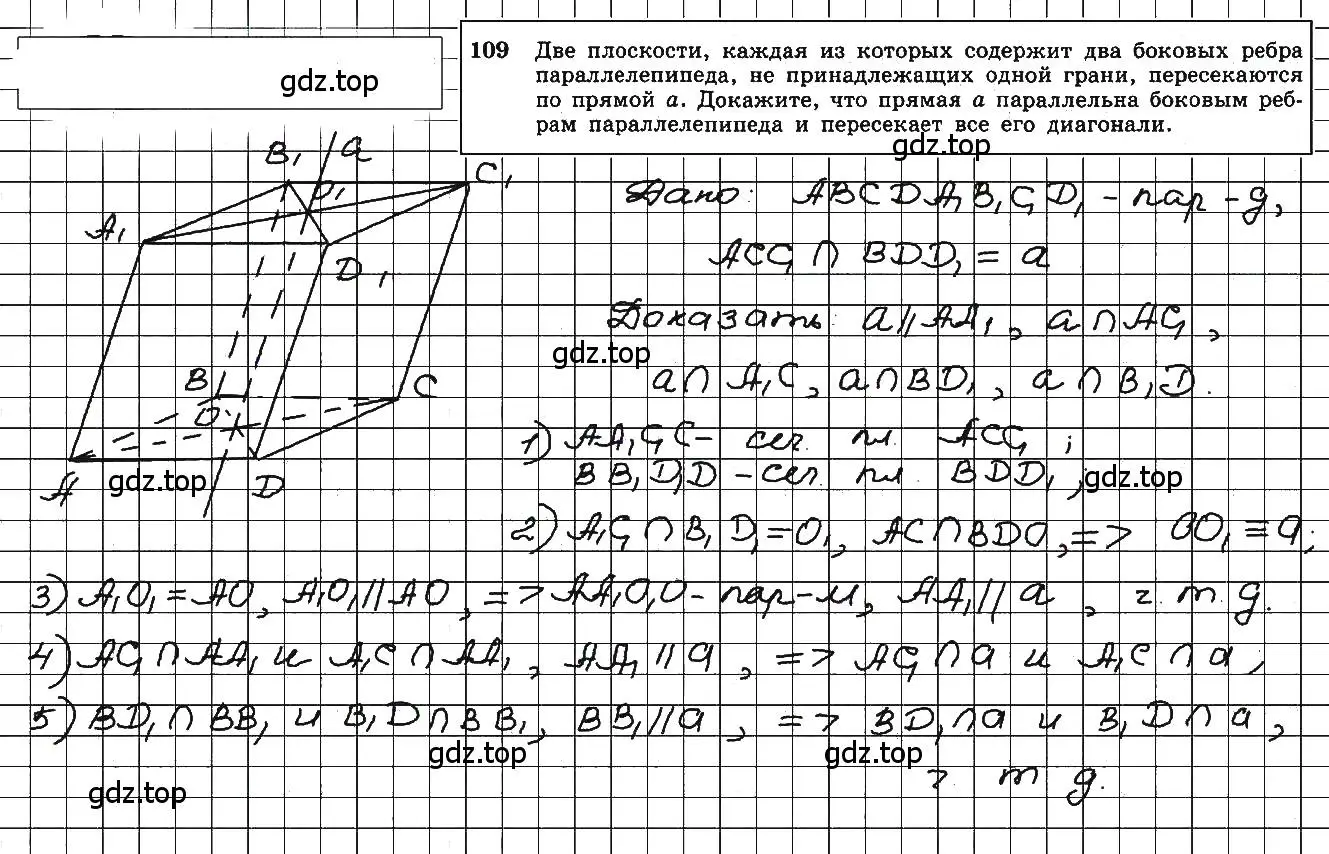 gdz.top
109 Две плоскости, каждая из которых содержит два боковых ребра
параллелепипеда, не принадлежащих одной грани, пересекаются
по прямой a. Докажите, что прямая a параллельна боковым реб-
рам параллелепипеда и пересекает все его диагонали.
gdz.top
B₁ a
O₁ C₁
A₁
D₁
B
O C
A D
gdz.top
Дано: ABCDA₁B₁C₁D₁ - пар-д,
ACC₁ ∩ BDD₁ = a
Доказать: a ∥ AA₁, a ∩ AC₁,
gdz.top
a ∩ A₁C, a ∩ BD₁, a ∩ B₁D.
1) AA₁C₁C - сеч. пл. ACC₁;
BB₁D₁D - сеч. пл. BDD₁,
gdz.top
2) A₁C₁ ∩ B₁D₁ = O₁, AC ∩ BDO, => OO₁ ≡ a;
3) A₁O₁ = AO, A₁O₁ ∥ AO, => AA₁O₁O - пар-м, AA₁ ∥ a, ч.т.д.
4) AC₁ ∩ AA₁ и A₁C ∩ AA₁, AA₁ ∥ a, => AC₁ ∩ a и A₁C ∩ a,
5) BD₁ ∩ BB₁ и B₁D ∩ BB₁, BB₁ ∥ a, => BD₁ ∩ a и B₁D ∩ a,
gdz.top gdz.top
ч т д.
gdz.top